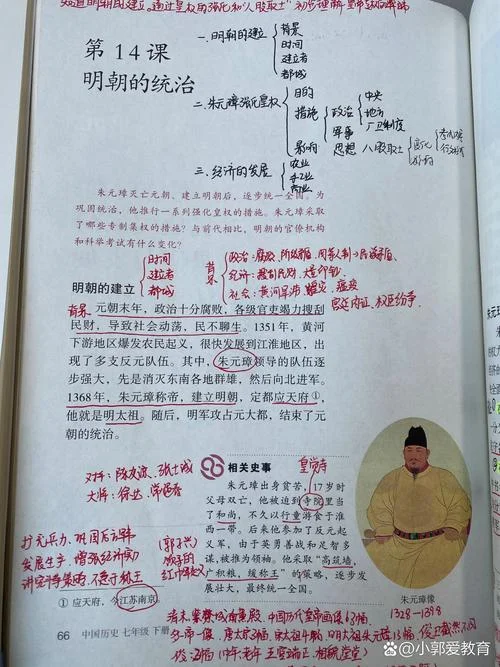 知道明朝的建立，通过皇权的强化和"八股取士"初步理解皇帝专权的弊端
第14课
明朝的统治
一、明朝的建立
背景
时间
建立者
都城
二、朱元璋强化皇权
目的
措施
影响
政治
军事
思想
中央
地方
厂卫制度
八股取士
三、经济的发展
农业
手工业
商业
朱元璋灭亡元朝、建立明朝后，逐步统一全国。为
巩固统治，他推行一系列强化皇权的措施。朱元璋采取
了哪些专制集权的措施？与前代相比，明朝的官僚机构
和科举考试有什么变化？
明朝的建立
时间
建立者
都城
背景
政治：腐败、阶级矛盾
社会：黄河旱涝、蝗灾、瘟疫
宫廷内讧、权臣纷争
背景
元朝末年，政治十分腐败，各级官吏竭力搜刮
民财，导致社会动荡，民不聊生。1351年，黄河
下游地区爆发农民起义，很快发展到江淮地区，出
现了多支反元队伍。其中，朱元璋领导的队伍逐
步强大，先是消灭东南各地群雄，然后向北进军。
1368年，朱元璋称帝，建立明朝，定都应天府①，
他就是明太祖。随后，明军攻占元大都，结束了元
朝的统治。
对手：陈友谅、张士诚
大将：徐达、常遇春
相关史事
皇觉寺
朱元璋出身贫苦，17岁时
父母双亡，他被迫到寺院里当
了和尚，不久以行童游食于淮
西一带。后来他参加了反元起
义军，由于英勇善战和足智多
谋，被推为领袖。他采取"高筑墙，
广积粮，缓称王"的策略，逐步发
展壮大，最终统一全国。
郭子兴
领导的
红巾军起义
发展生产，增强经济实力
① 应天府，今江苏南京。
朱元璋像
1328—1398
66 中国历史 七年级 下册
@小郭爱教育